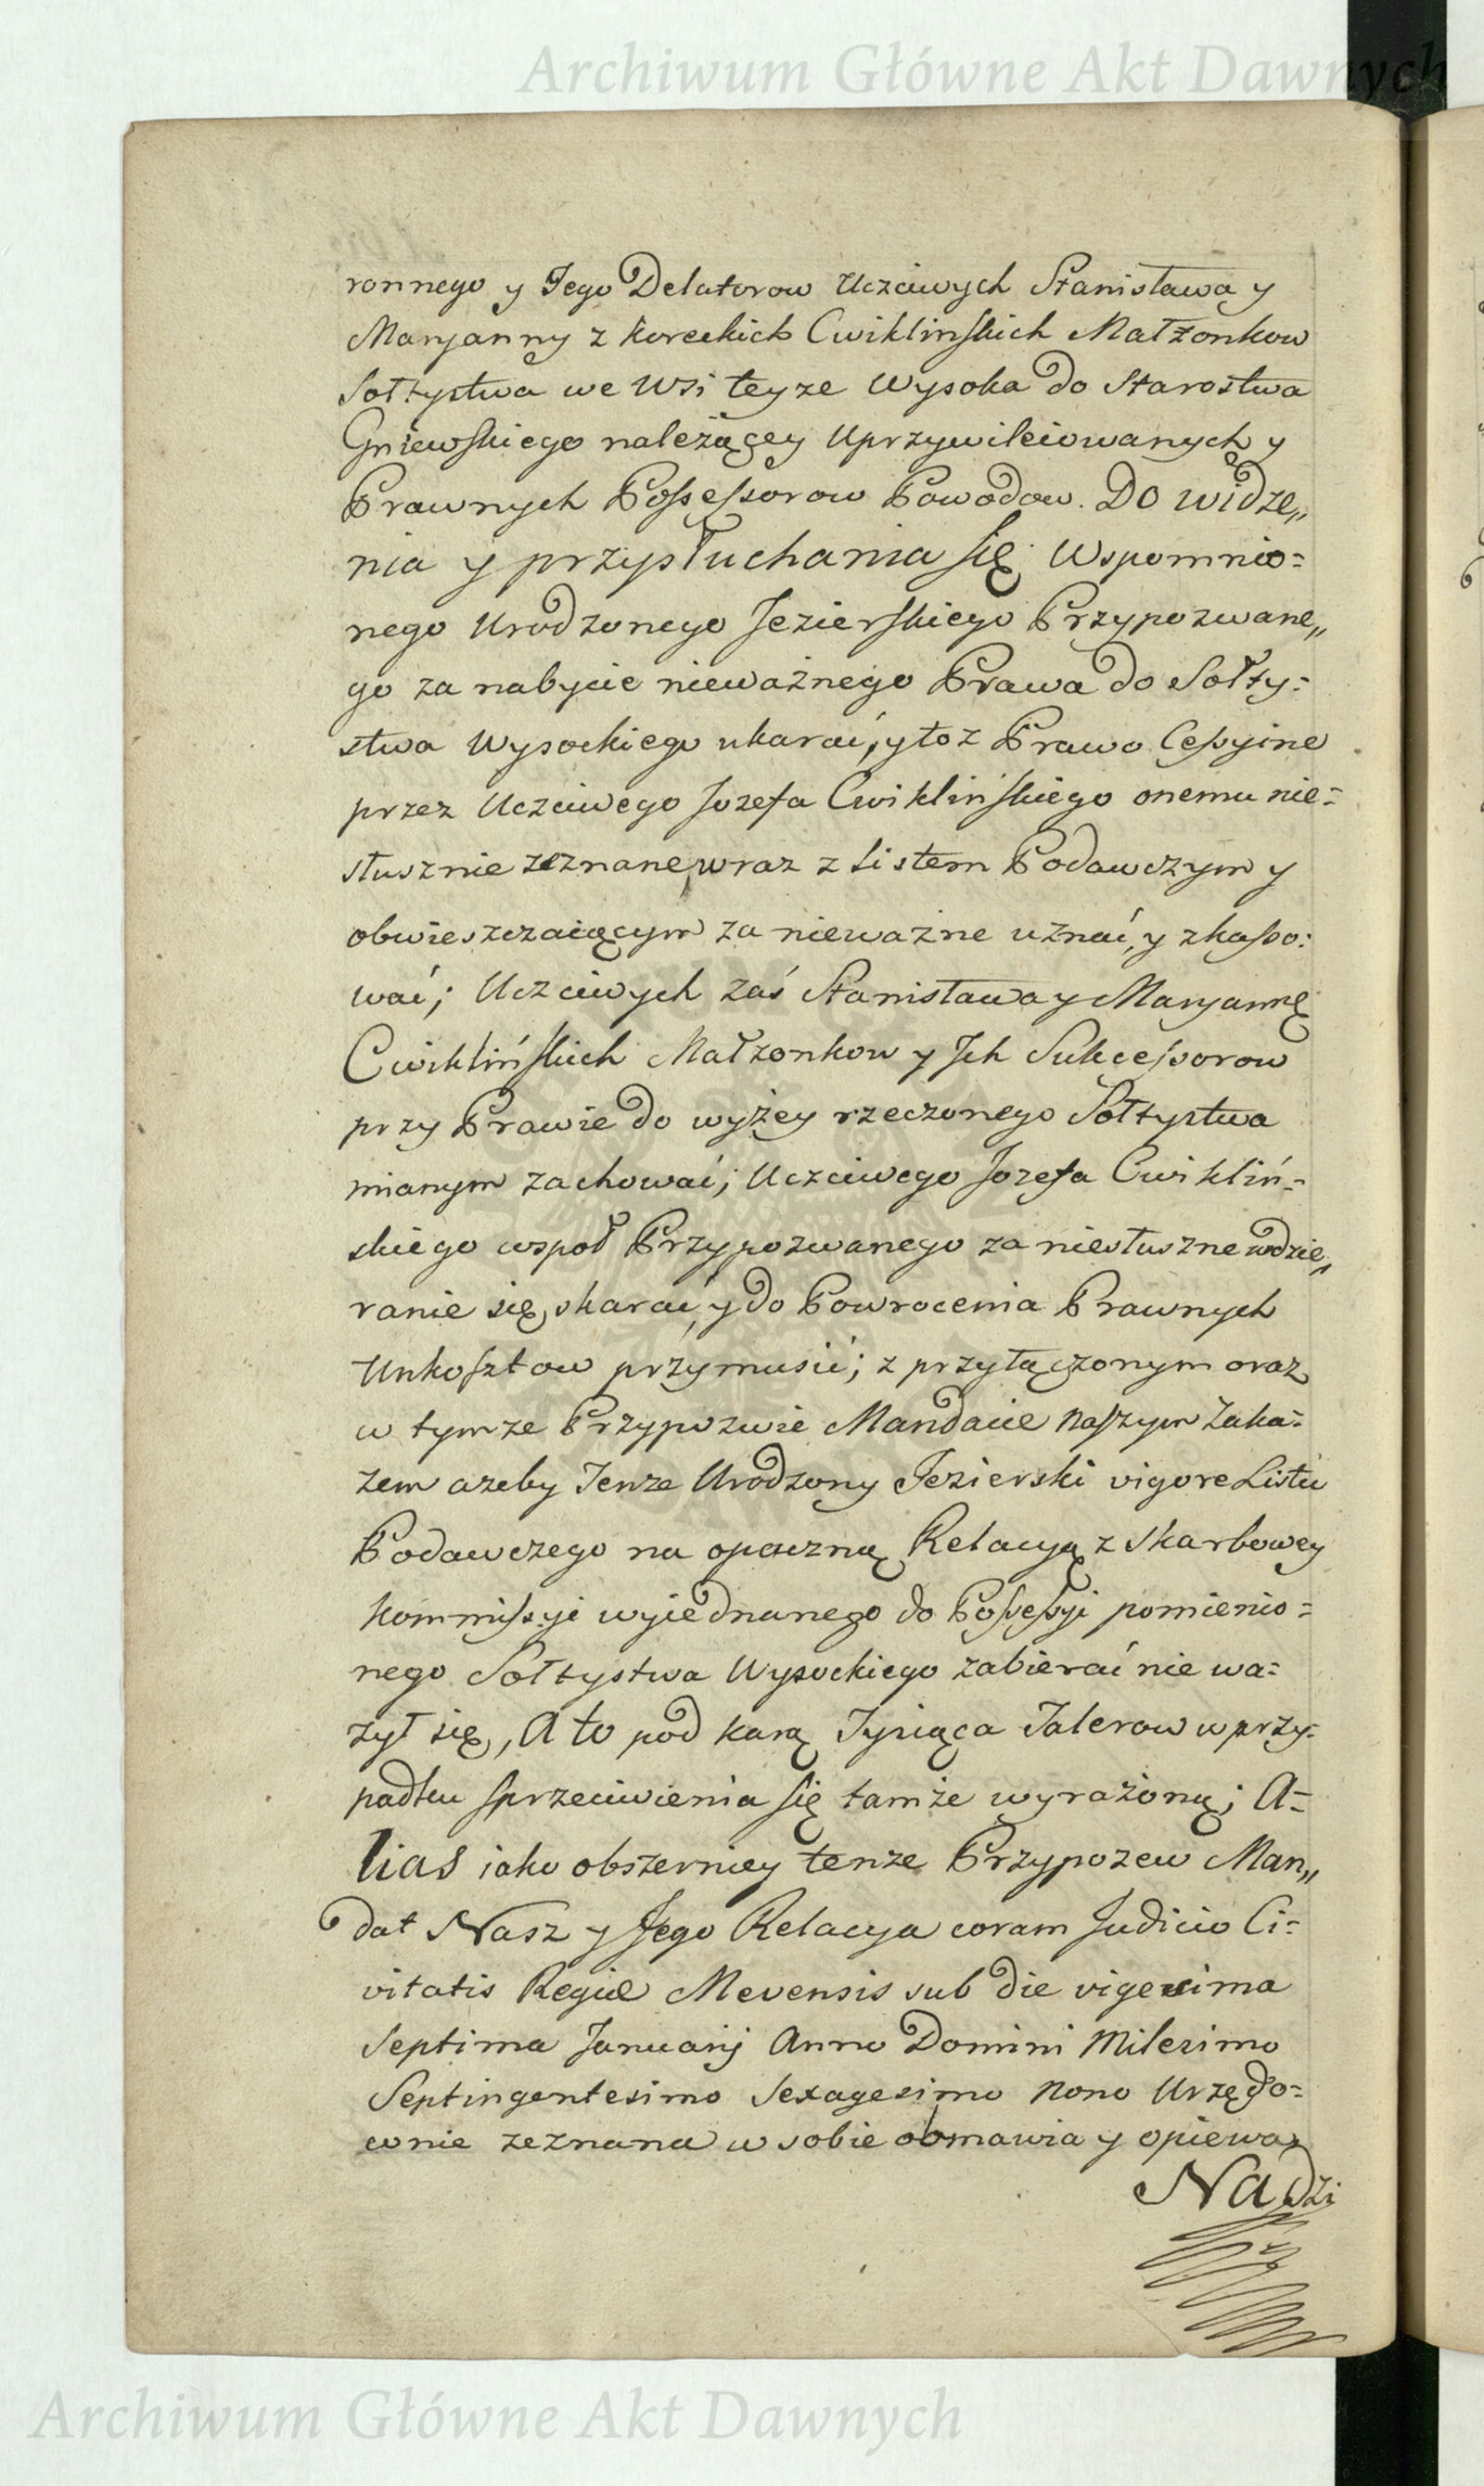 Archiwum Główne Akt Dawnych
ronnego y Jego Delatorow Uczciwych Stanisława y
Maryanny z Koreckich Cwiklinskich Małżonkow
Sołtystwa we Wsi teyze Wysoka do Starostwa
Gniewskiego należącey Uprzywileiowanych y
Prawnych Possessorow Powodow. Do widze„
nia y przysłuchania się Wspomnio=
nego Urodzonego Jezierskiego Przypozwane„
go za nabycie nieważnego Prawa do Sołty=
stwa Wysockiego ukarać, y toż Prawo Cessyine
przez Uczciwego Jozefa Cwiklińskiego onemu nie=
słusznie zeznane, wraz z Listem Podawczym y
obwieszczaiącym za nieważne uznać, y skasso=
wać; Uczciwych zaś Stanisława y Maryannę
Cwiklińskich Małżonkow y Jch Sukcessorow
przy Prawie do wyżey rzeczonego Sołtystwa
mianym zachować; Uczciwego Jozefa Cwikliń=
skiego wspoł Przypozwanego za niesłuszne wdzie„
ranie się, skarać, y do Powrocenia Prawnych
Unkosztow przymusić; z przyłączonym oraz
w tymze Przypozwie Mandacie Naszym Zaka=
zem azeby Tenze Urodzony Jezierski vigore Listu
Podawczego na opaczną Relacyą z Skarbowey
Kommissyi wyiednanego do Possessyi pomienio=
nego Sołtystwa Wysockiego zabierać nie wa=
zył się, A to pod karą Tysiąca Talerow w przy=
padku sprzeciwienia się tamże wyrażoną; A=
lias iako obszerniey tenze Przypozew Man„
dat Nasz y Jego Relacya coram Judicio Ci=
vitatis Regiæ Mevensis sub die vigesima
Septima Januarij Anno Domini Milesimo
Septingentesimo Sexagesimo Nono Urzędo=
wnie zeznana w sobie obmawia y opiewa
Na dzi
Archiwum Główne Akt Dawnych